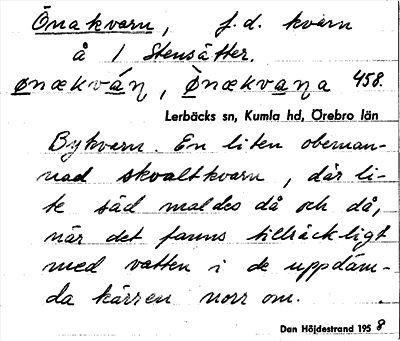 Önakvarn, f.d. kvarn
å 1 Stensätter.
ønækván, Ònækvana 458.
Lerbäcks sn, Kumla hd, Örebro län
Bykvarn. En liten obeman-
nad skvaltkvarn, där li-
te säd maldes då och då,
när det fanns tillräckligt
med vatten i de uppdäm-
da kärren norr om.
Dan Höjdestrand 1958